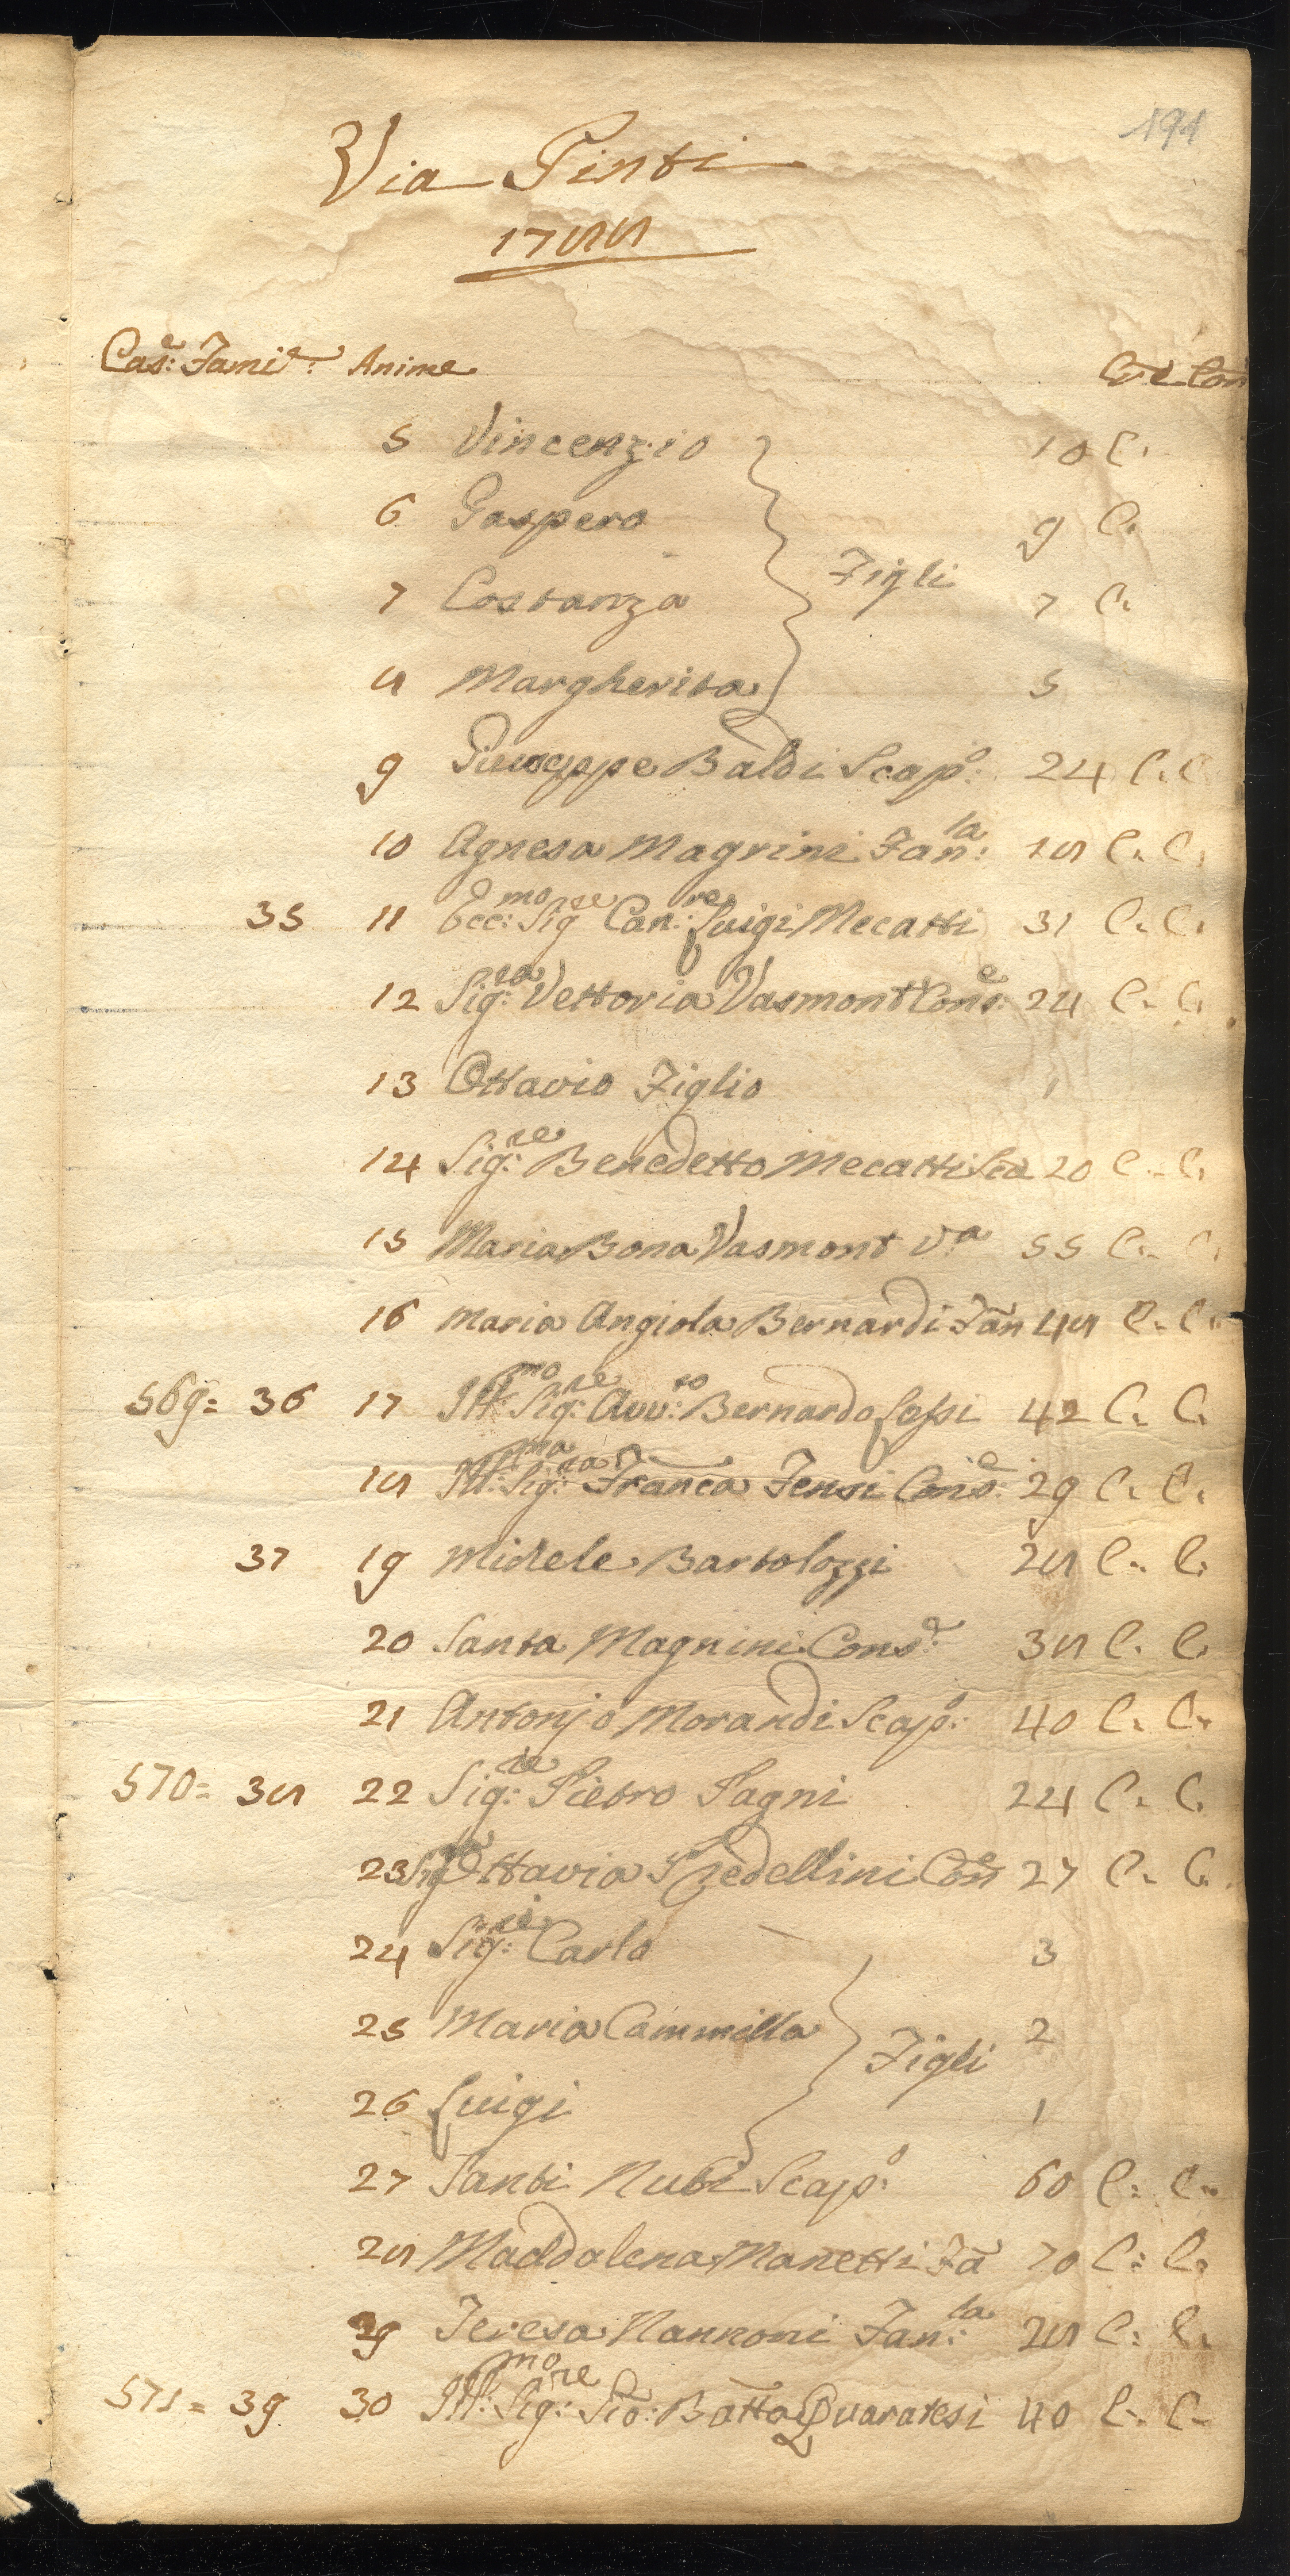 194
Via Pinti
1788
Cas:e Fami:e Anime Cr. e Con
5 Vincenzio 10 C.
6 Gaspero 9 C.
7 Costanza Figli 7 C.
8 Margherita 5
9 Giuseppe Baldi Scap:o 24 C. C.
10 Agnesa Magrini Fan:la 18 C. C.
35 11 Ecc:mo Sig:re Can:re Luigi Mecatti 31 C. C.
12 Sig:ra Vettoria Vasmont Cons:e 24 C. C.
13 Ottavio Figlio 1
14 Sig:re Benedetto Mecatti Sca 20 C. C.
15 Maria Bona Vasmont V.a 55 C. C.
16 Maria Angiola Bernardi Fan 48 C. C.
569= 36 17 Ill:mo Sig:re Avv:to Bernardo Lessi 42 C. C.
18 Ill:ma Sig:ra Franca Fensi Cons:e 29 C. C.
37 19 Michele Bartolozzi 28 C. C.
20 Santa Magnini Cons:e 38 C. C.
21 Antonjo Morandi Scap:o 40 C. C.
570= 38 22 Sig:re Pietro Fagni 24 C. C.
23 Sig Ottavia Spedellini Cons 27 C. C.
24 Sig:re Carlo 3
25 Maria Cammilla Figli 2
26 Luigi 1
27 Santi Nuti Scap:o 60 C: C.
28 Maddalena Manetti Fa 70 C: C.
29 Teresa Nannoni Fan:la 28 C: C.
571= 39 30 Ill:mo Sig:re Gio: Batta Quaratesi 40 C. C.